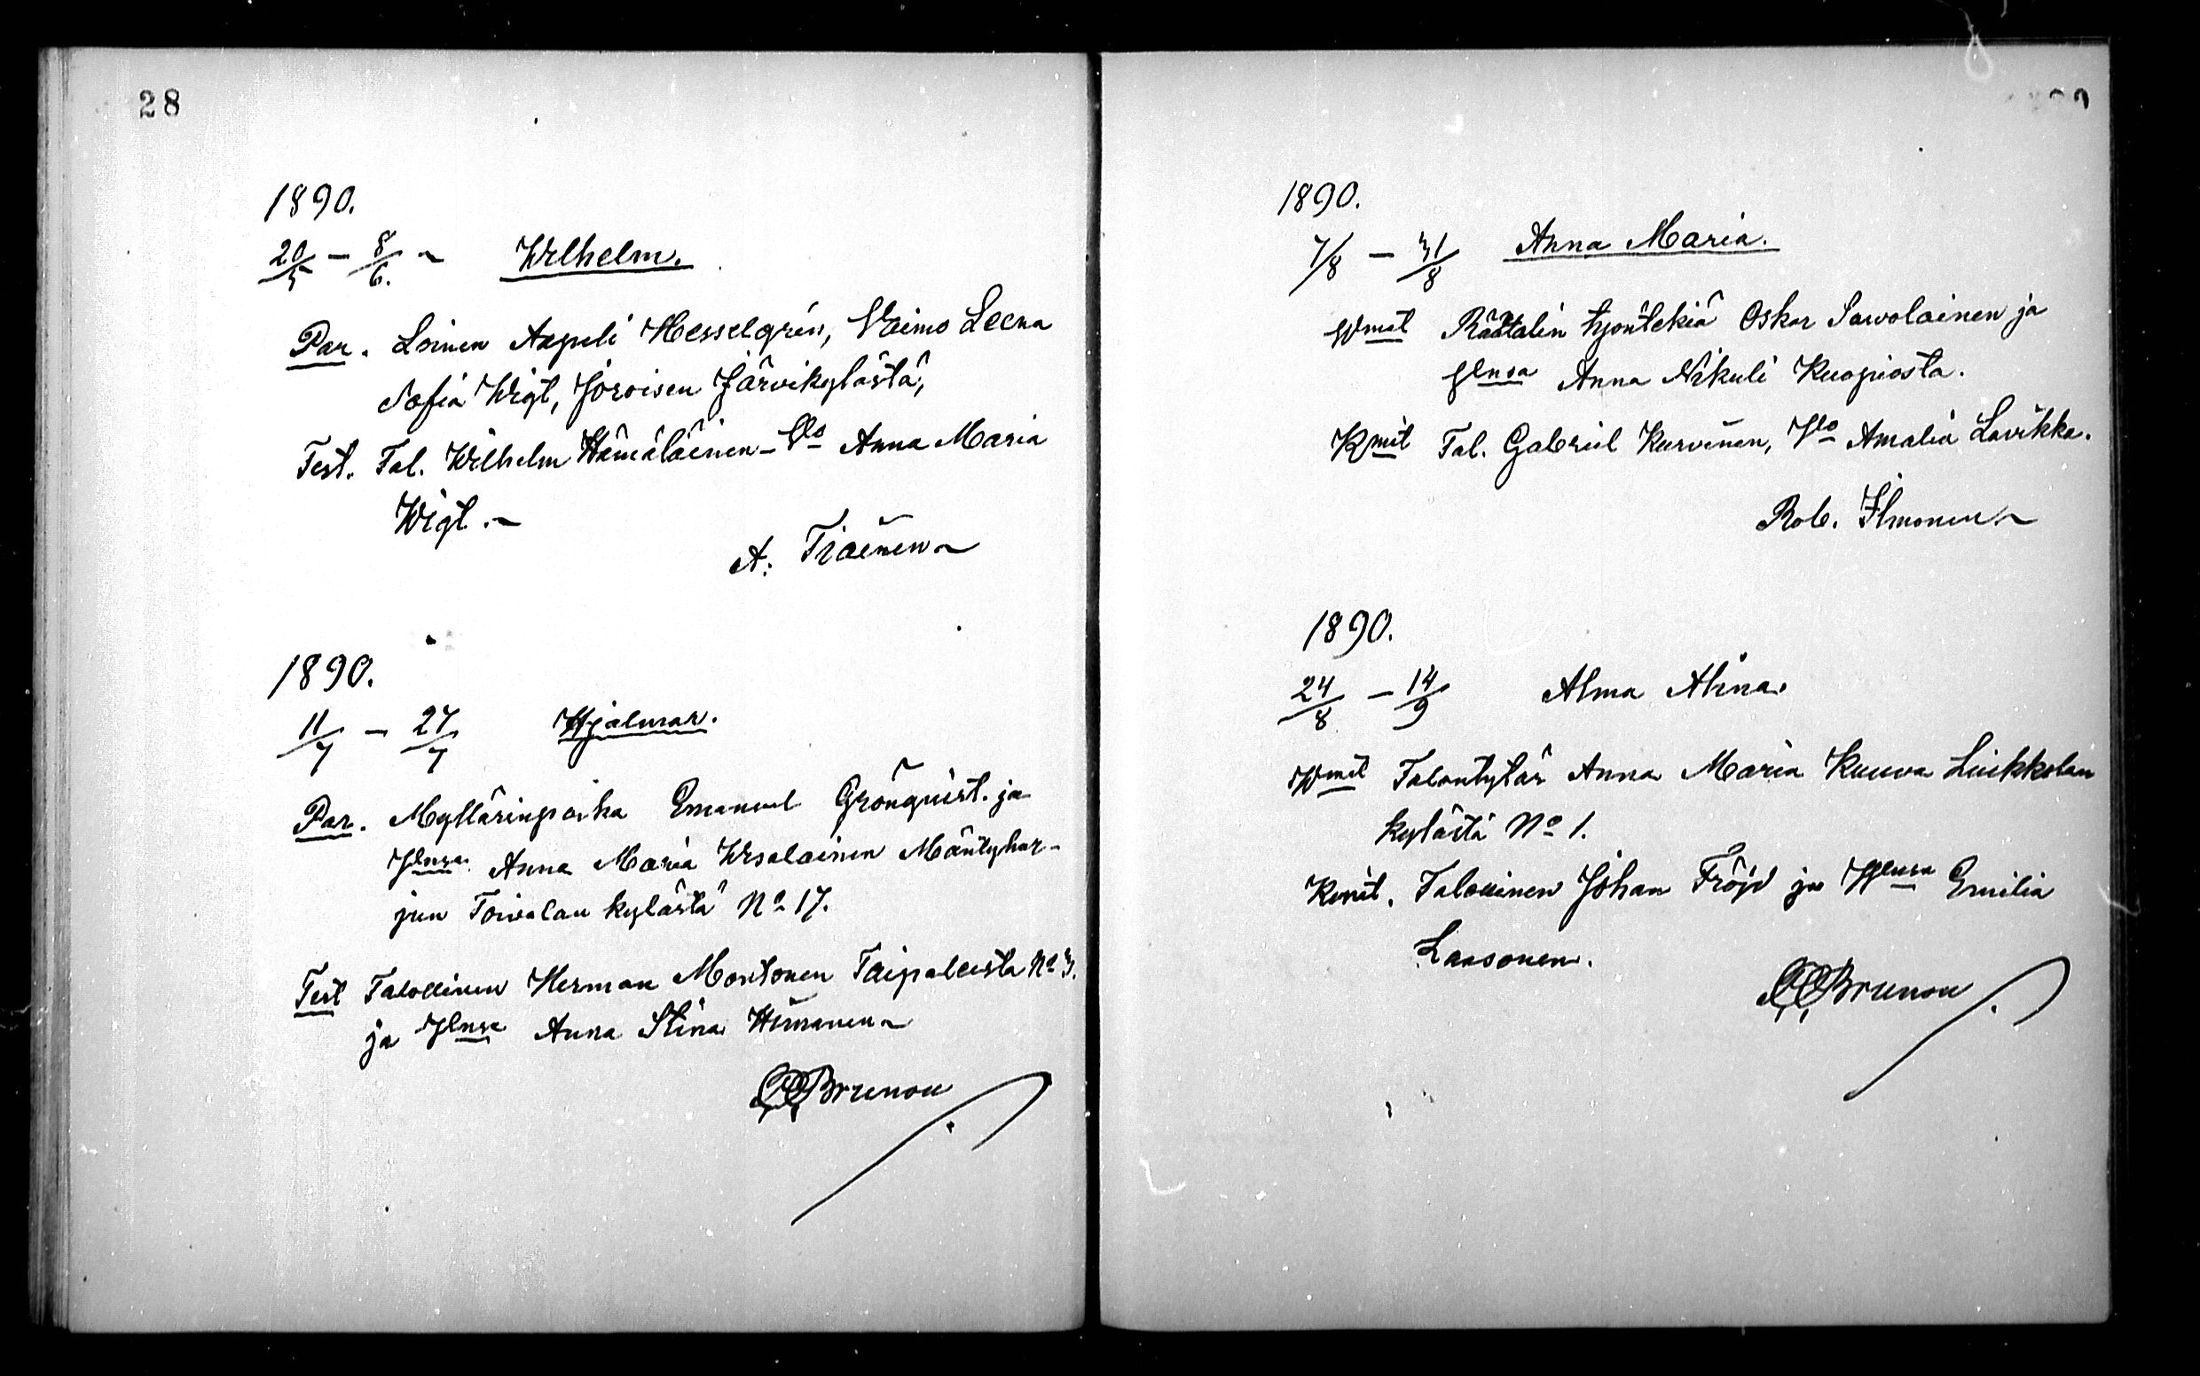 28
1890.
20/5 - 8/6. Wilhelm.
Par. Loinen Aapeli Hesselgrén, Vaimo Leena
Sofia Wigt, Joroisen Järvikylästä,
Test. Tal. Wilhelm Hämäläinen - Vo Anna Maria
Wigt.
A. Tiainen
1890.
11/7 - 27/7 Hjalmar.
Par. Myllärinpoika Emanuel Grönqvist. ja
Anna Maria Mäntyhar-
jun Toivolan kylästä No 17.
Test Talollinen Herman Montonen Taipaleesta No 3.
ja Anna Stina
Brunou
1890.
7/8 - 31/8 Anna Maria.
Wmat Räätälin työntekiä Oskar Sawolainen ja
Anna Nikuli Kuopiosta.
Kmit Tal. Gabriel Kurvinen, Vo Amalia Lavikka.
Rob. Ilmonen
1890.
24/8 - 14/9 Alma Alina.
Wmat Talontytär Anna Maria Kuuva Liukkolan
kylästä No 1.
Kmit. Talollinen Johan Fröjd ja Emilia
Laasonen.
Brunou